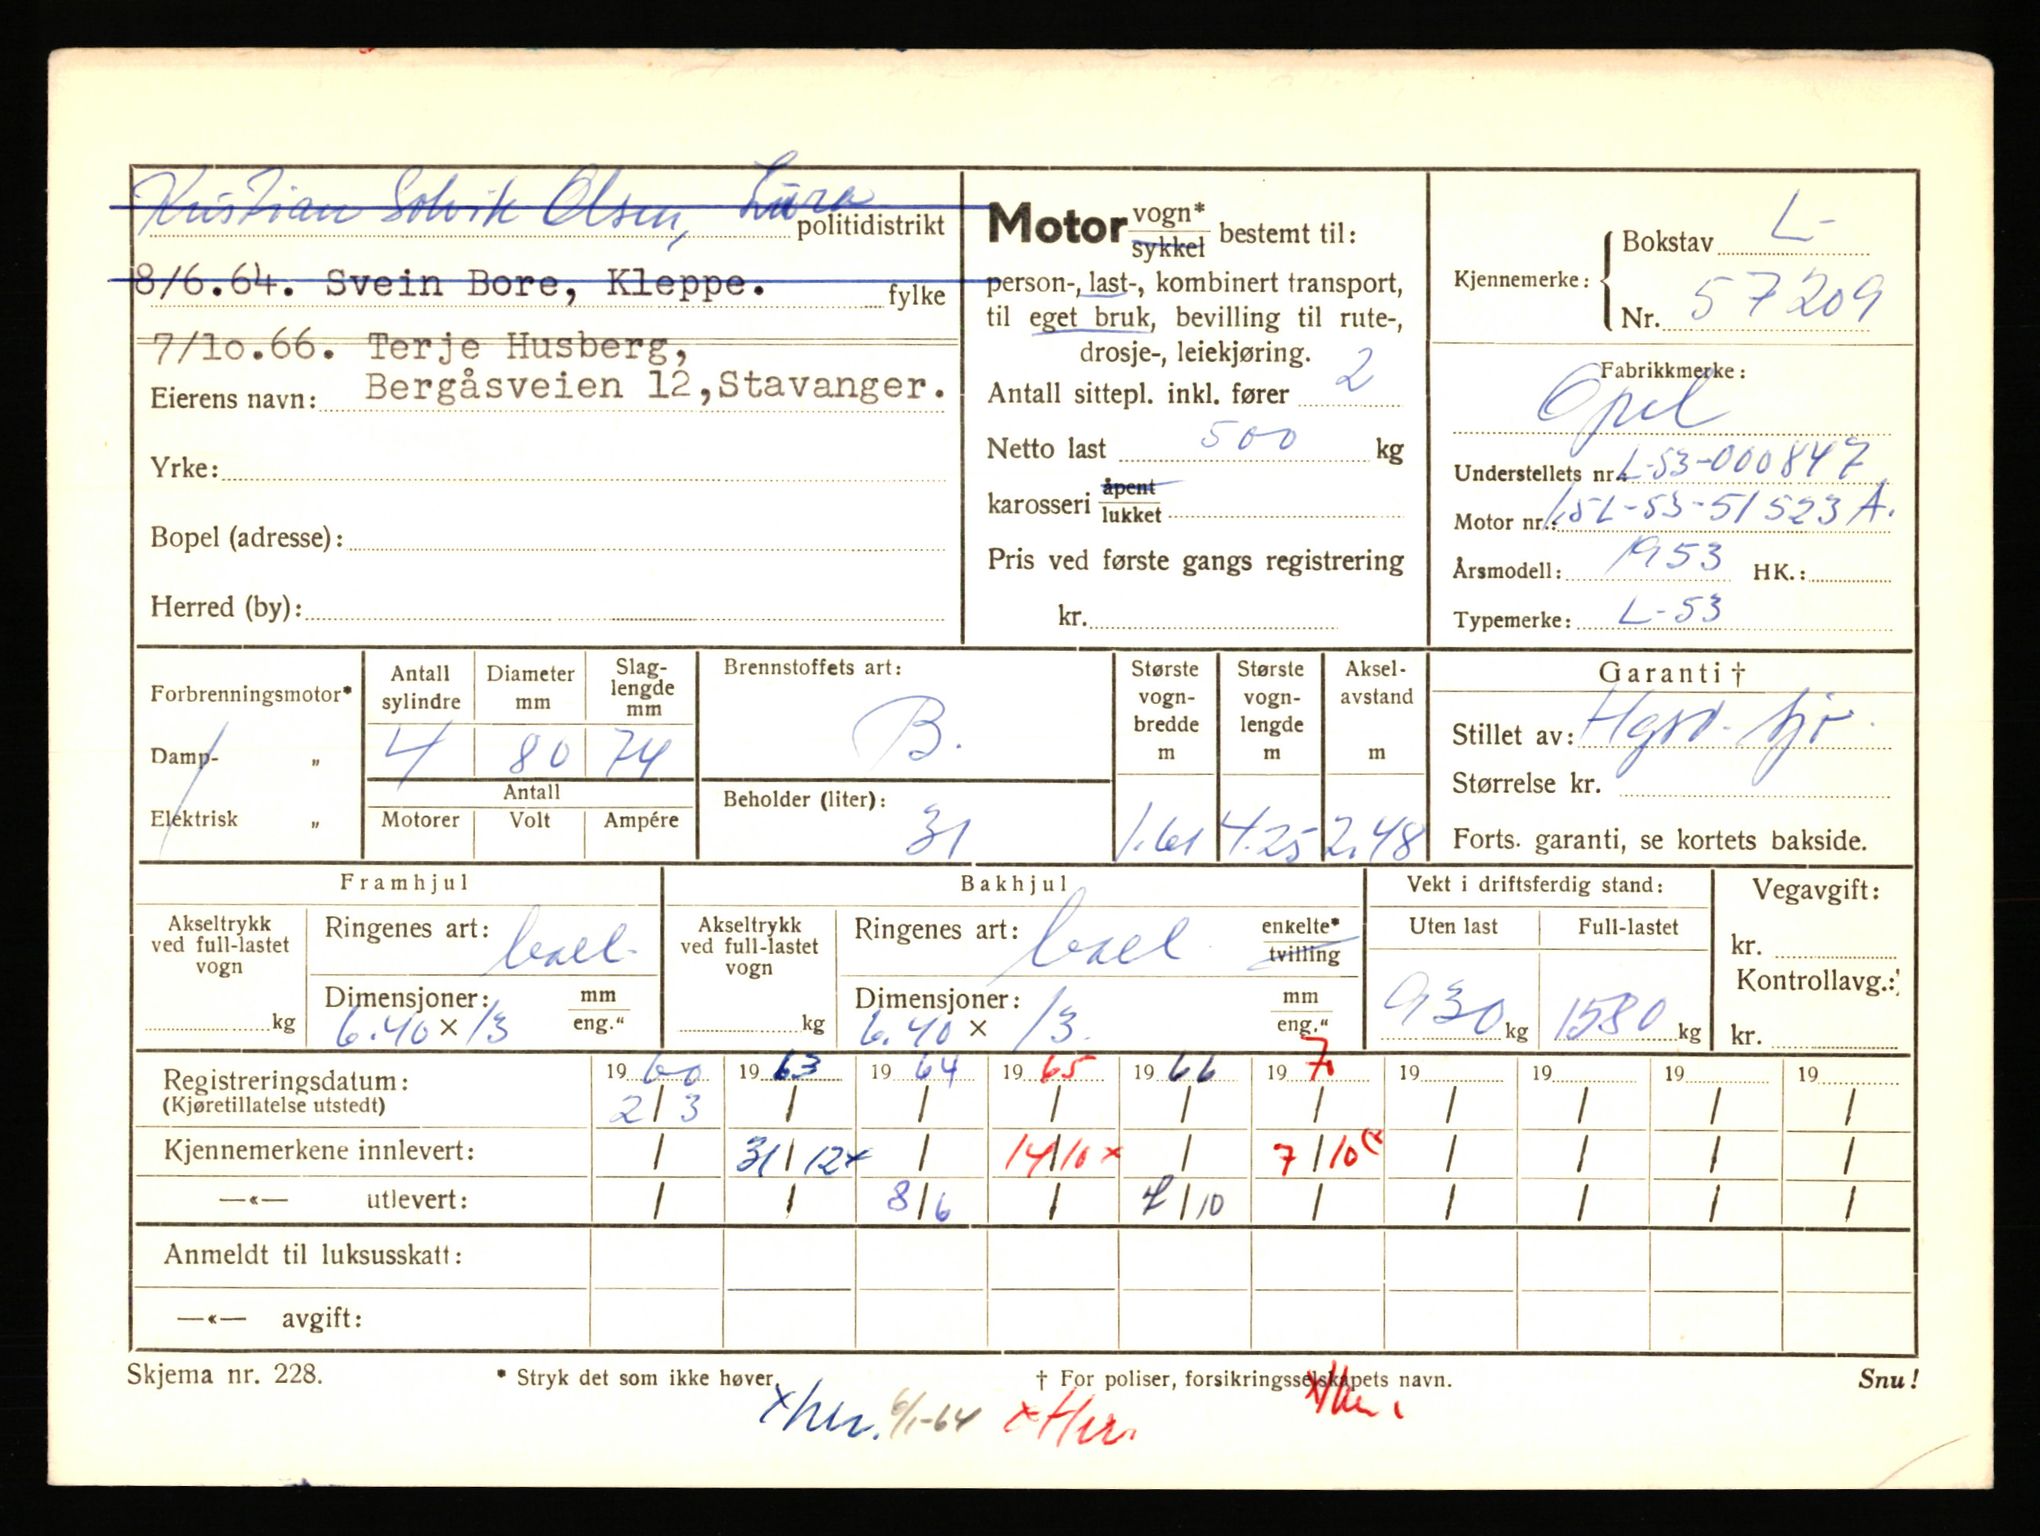 Kristian Solvik Olsen, Lura
politidistrikt
8/6.64. Svein Bore, Kleppe.
fylke
7/10.66. Terje Husberg,
Bergåsveien 12, Stavanger.
Eierens navn:
Yrke:
Bopel (adresse):
Herred (by):
Motor vogn* sykkel bestemt til:
person-, last-, kombinert transport,
til eget bruk, bevilling til rute-,
drosje-, leiekjøring.
Antall sittepl. inkl. fører 2
Netto last 500 kg
karosseri åpent lukket
Pris ved første gangs registrering
kr.
Kjennemerke: Bokstav L-
Nr. 57209
Fabrikkmerke:
Opel
Understellets nr. L-53-000847
Motor nr.: 1.5L-53-51523A.
Årsmodell: 1953 HK.:
Typemerke: L-53
Forbrenningsmotor*
Damp- "
Elektrisk "
Antall sylindre Diameter mm Slag-lengde mm
4 80 74
Antall
Motorer Volt Ampére
Brennstoffets art:
B.
Beholder (liter):
31
Største vogn-bredde m
1.61
Største vogn-lengde m
4.25
Aksel-avstand m
2.48
Garanti †
Stillet av:
Størrelse kr.
Forts. garanti, se kortets bakside.
Framhjul
Akseltrykk ved full-lastet vogn
kg
Ringenes art:
Dimensjoner: mm eng."
6.40 × 13
Bakhjul
Akseltrykk ved full-lastet vogn
kg
Ringenes art: enkelte* tvilling
Dimensjoner: mm eng."
6.40 × 13.
Vekt i driftsferdig stand:
Uten last Full-lastet
930 kg 1580 kg
Vegavgift:
kr.
Kontrollavg.:
kr.
Registreringsdatum: 1960 1963 1964 1965 1966 197 19 19 19 19
(Kjøretillatelse utstedt) 2/3 / / / / / / / / /
Kjennemerkene innlevert: / 31/12x / 14/10x / 7/10(x / / / /
—«— utlevert: / / 8/6 / 7/10 / / / / /
Anmeldt til luksusskatt:
—«— avgift:
Skjema nr. 228.
* Stryk det som ikke høver.
† For poliser, forsikringsselskapets navn.
Snu!
6/1-64